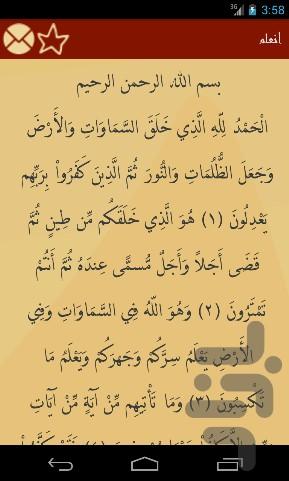 3G 3:58
انعام
بسم الله الرحمن الرحیم
الْحَمْدُ لِلّهِ الَّذِي خَلَقَ السَّمَاوَاتِ وَالأَرْضَ
وَجَعَلَ الظُّلُمَاتِ وَالنُّورَ ثُمَّ الَّذِينَ كَفَرُواْ بِرَبِّهِم
يَعْدِلُونَ (۱) هُوَ الَّذِي خَلَقَكُم مِّن طِينٍ ثُمَّ
قَضَى أَجَلاً وَأَجَلٌ مُّسمًّى عِندَهُ ثُمَّ أَنتُمْ
تَمْتَرُونَ (۲) وَهُوَ اللّهُ فِي السَّمَاوَاتِ وَفِي
الأَرْضِ يَعْلَمُ سِرَّكُمْ وَجَهرَكُمْ وَيَعْلَمُ مَا
تَكْسِبُونَ (۳) وَمَا تَأْتِيهِم مِّنْ آيَةٍ مِّنْ آيَاتِ